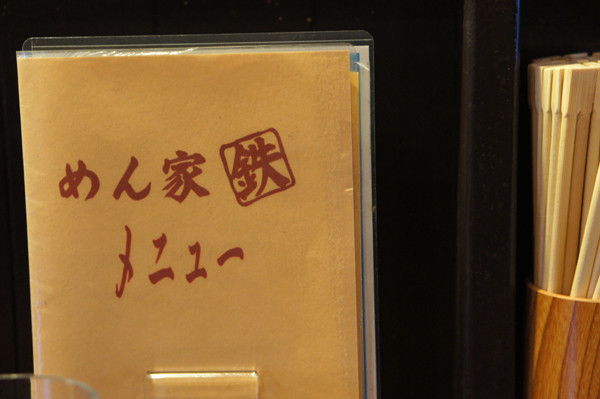 めん家 鉄
メニュー